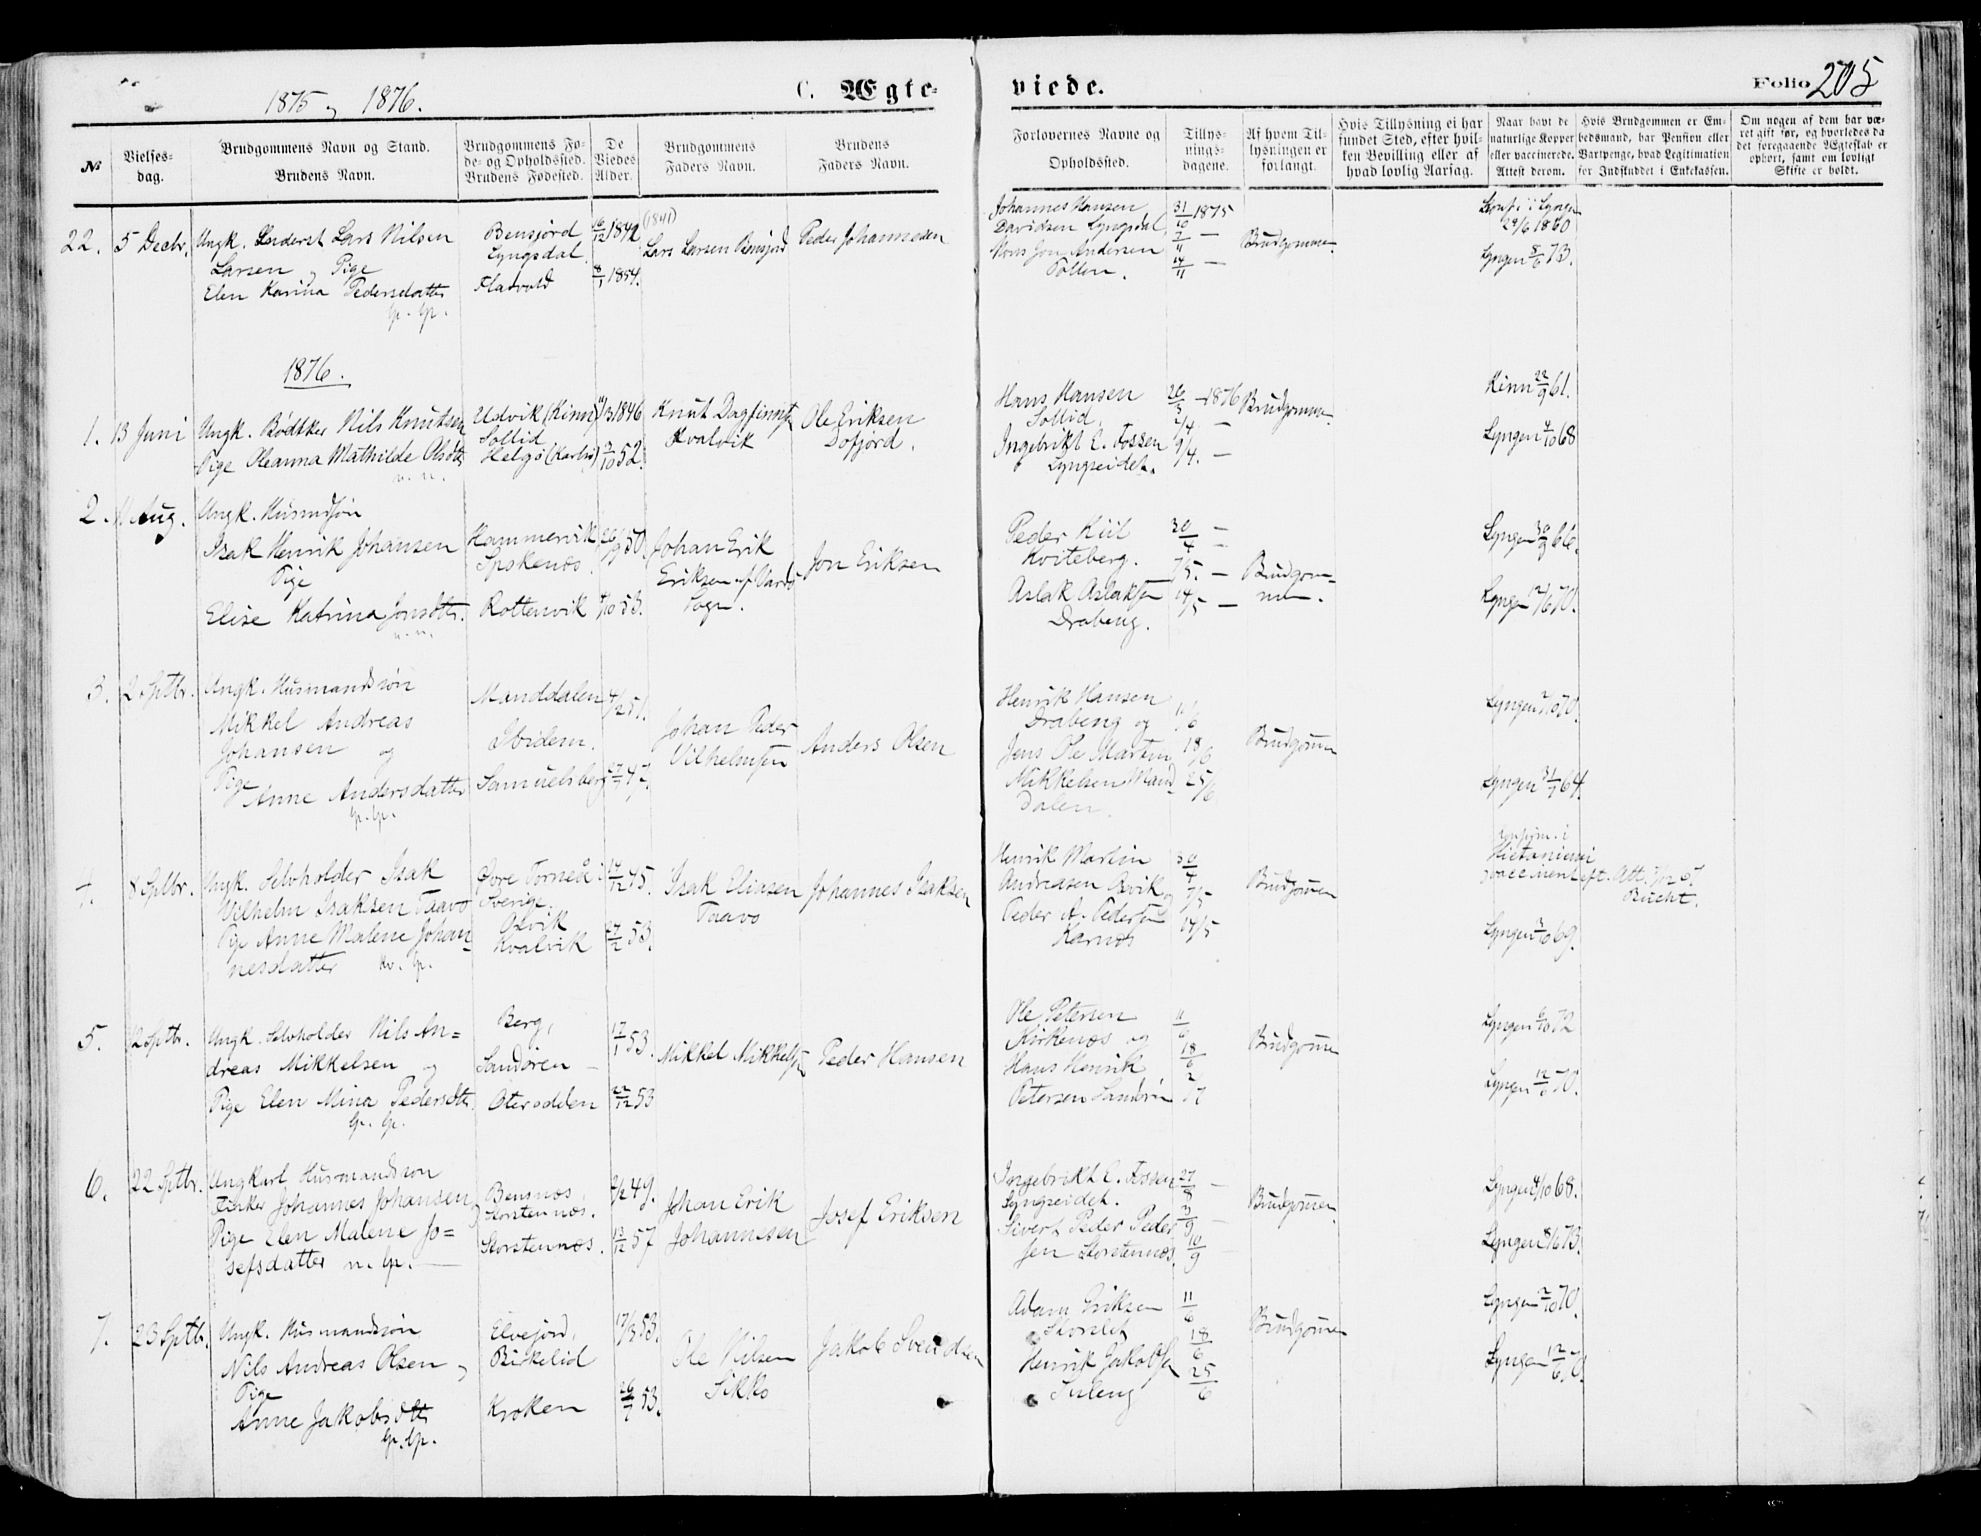 1875 og 1876.
C. Ægte-
viede.
Folio 205
No
Vielses-
dag.
Brudgommens Navn og Stand.
Brudens Navn.
Brudgommens Fø-
de- og Opholdssted.
Brudens Fødested.
De
Viedes
Alder.
Brudgommens
Faders Navn.
Brudens
Faders Navn.
Forlovernes Navne og
Opholdssted.
Tillys-
nings-
dagene.
Af hvem Til-
lysningen er
forlangt.
Hvis Tillysning ei har
fundet Sted, efter hvil-
ken Bevilling eller af
hvad lovlig Aarsag.
Naar havt de
naturlige Kopper
eller vaccinerede.
Attest derom.
Hvis Brudgommen er Em-
bedsmand, har Pension eller
Vartpenge, hvad Legitimation
for Indskuddet i Enkekassen.
Om nogen af dem har væ-
ret gift før, og hvorledes da
det foregaaende Ægteskab er
ophørt, samt om lovligt
Skifte er holdt.
22. 5 Decbr.
Ungk. Lars Nilsen
Larsen og Pige
Elen Karina Pedersdatter
Bensjord
Lyngsdal
16/12 1842
(1841)
8/1 1854.
Lars Larsen Bensjord
Peder Johannesen
Johannes Hansen
Davidsen Lyngsdal
Mons Jon Andersen
Pollen.
31/10 1875
7/11 —
14/11 —
Brudgommen
Konf. i Lyngen
24/6 1860
Lyngen 8/6 73.
1876.
1. 13 Juni
Ungk. Bødtker Nils Knutsen
Pige Oleanna Mathilde Olsdtr
Udvik (Kinn)
Sollid
Helgø (Karlsø)
11/3 1846
2/10 52.
Knut Dagfinnsen
Kvalvik
Ole Eriksen
Dofjord.
Hans Hansen
Sollid.
Ingebrikt E. Fossen
Lyngseidet.
26/3 — 1876
2/4 —
9/4. —
Brudgommen
Kinn 22/9 61.
Lyngen 4/10 68
2. 11 Aug.
Ungk. Husmdsøn
Isak Henrik Johansen
Pige
Elise Katrina Jonsdtr.
Hammervik
Spokenæs.
Rottenvik
26/9 50.
4/10 53.
Johan Erik
Eriksen af
Sogn.
Jon Eriksen
Peder Kiil
Kviteberg.
Aslak Aslaksen
Drabeng.
30/4 —
7/5. —
14/5 —
Brudgom-
men.
Lyngen 30/9 66.
Lyngen 12/6 70.
3. 2 Sptbr.
Ungk. Husmandssøn
Mikkel Andreas
Johansen og
Pige
Anne Andersdatter
Manddalen
Ibidem.
Samuelsberg
4/2 51.
27/7 47.
Johan Peder
Vilhelmsen
Anders Olsen
Henrik Hansen
Drabeng og
Jens Ole Martin
Mikkelsen Mand-
dalen.
11/6
18/6
25/6
Brudgommen
Lyngen 2/10 70.
Lyngen 31/7 64.
4. 8 Sptbr.
Ungk. Selvholder Isak
Vilhelm Isaksen Taavo
Pige Anne Malene Johan-
nesdatter
Øvre Torneå i
Sverige.
Oxvik
Kvalvik
14/12 45.
27/2 53.
Isak Eliasen
Taavo
Johannes Isaksen
Henrik Martin
Andreasen Oxvik og
Peder A. Pedersen
Karnæs
30/4
7/5
14/5
Brudgommen
Konfirm. i
Hietaniemi
Lyngen 3/10 69.
5. 12 Sptbr.
Ungk. Selvholder Nils An-
dreas Mikkelsen og
Pige Elen Mina Pedersdtr.
Berg,
Sandøren —
Oterodden
17/1 53.
22/12 53
Mikkel Mikkelsen
Peder Hansen
Ole Petersen
Kirkenæs og
Hans Henrik
Petersen Sandøren
11/6
18/6
2/7
Brudgommen
Lyngen 6/10 72
Lyngen 12/6 70.
6. 22 Sptbr.
Ungkarl Husmandssøn
Johannes Johansen
Pige Elen Malene Jo-
sefsdatter
Bensnæs,
Storstennæs.
Storstennæs.
2/2 49.
13/12 57
Johan Erik
Johannesen
Josef Eriksen
Ingebrikt E. Fossen
Lyngseidet.
Sivert Peder Peder-
sen Storstennæs.
27/8 —
3/9 —
10/9 —
Brudgommen
Lyngen 4/10 68.
Lyngen 8/6 73.
7. 23 Sptb.
Ungk. Husmandssøn
Nils Andreas Olsen og
Pige
Anne Jakobsdtr
Elvejord,
Birkelid
Kroken
17/3 53.
Ole Nilsen
Sikko
Jakob Svendsen
Adam Eriksen
Storslet
Henrik Jakobsen
11/6
18/6
25/6
Brudgommen
Lyngen 2/10 70.
Lyngen 12/6 70.